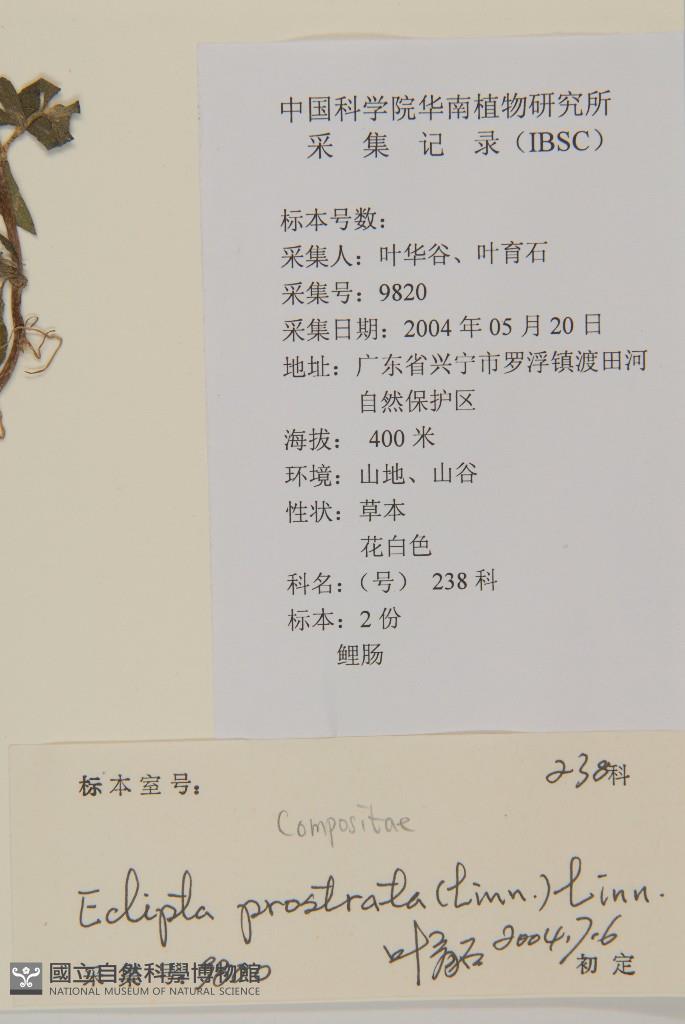 中国科学院华南植物研究所
采 集 记 录（IBSC）
标本号数：
采集人：叶华谷、叶育石
采集号：9820
采集日期：2004 年 05 月 20 日
地址：广东省兴宁市罗浮镇渡田河
自然保护区
海拔： 400 米
环境：山地、山谷
性状：草本
花白色
科名：（号） 238 科
标本：2 份
鲤肠
标本室号：
238科
Compositae
Eclipta prostrata (Linn.) Linn.
叶育石 2004.7.6
采 集 号: 9820
初 定
國立自然科學博物館
NATIONAL MUSEUM OF NATURAL SCIENCE